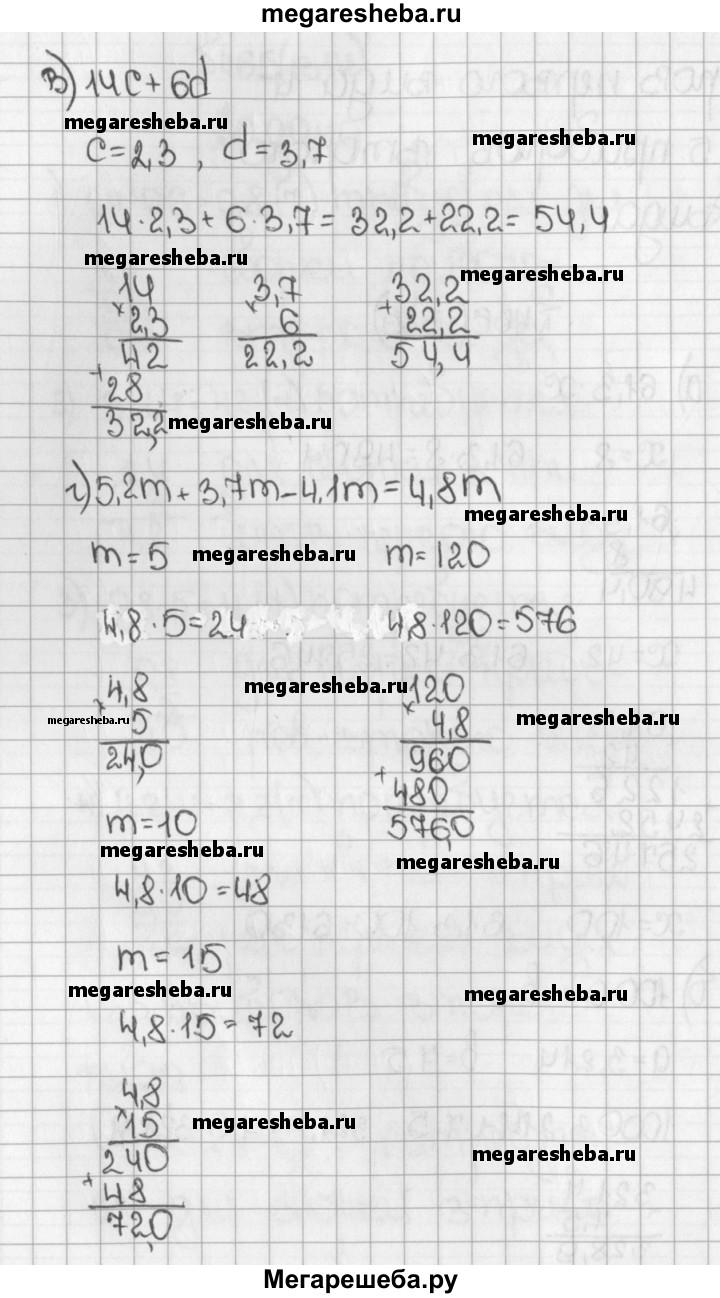 megaresheba.ru
в) 14c + 6d
megaresheba.ru megaresheba.ru
c = 2,3 , d = 3,7
14·2,3 + 6·3,7 = 32,2 + 22,2 = 54,4
megaresheba.ru megaresheba.ru
14 3,7 32,2
× 2,3 × 6 + 22,2
42 22,2 54,4
+ 28
32,2 megaresheba.ru
г) 5,2m + 3,7m - 4,1m = 4,8m
megaresheba.ru
m = 5 megaresheba.ru m = 120
4,8·5 = 24 4,8·120 = 576
4,8 megaresheba.ru 120
megaresheba.ru × 5 × 4,8 megaresheba.ru
24,0 960
+ 480
m = 10 576,0
megaresheba.ru megaresheba.ru
4,8·10 = 48
m = 15
megaresheba.ru megaresheba.ru
4,8·15 = 72
4,8
× 15 megaresheba.ru
240 megaresheba.ru
+ 48
72,0
Мегарешеба.ру